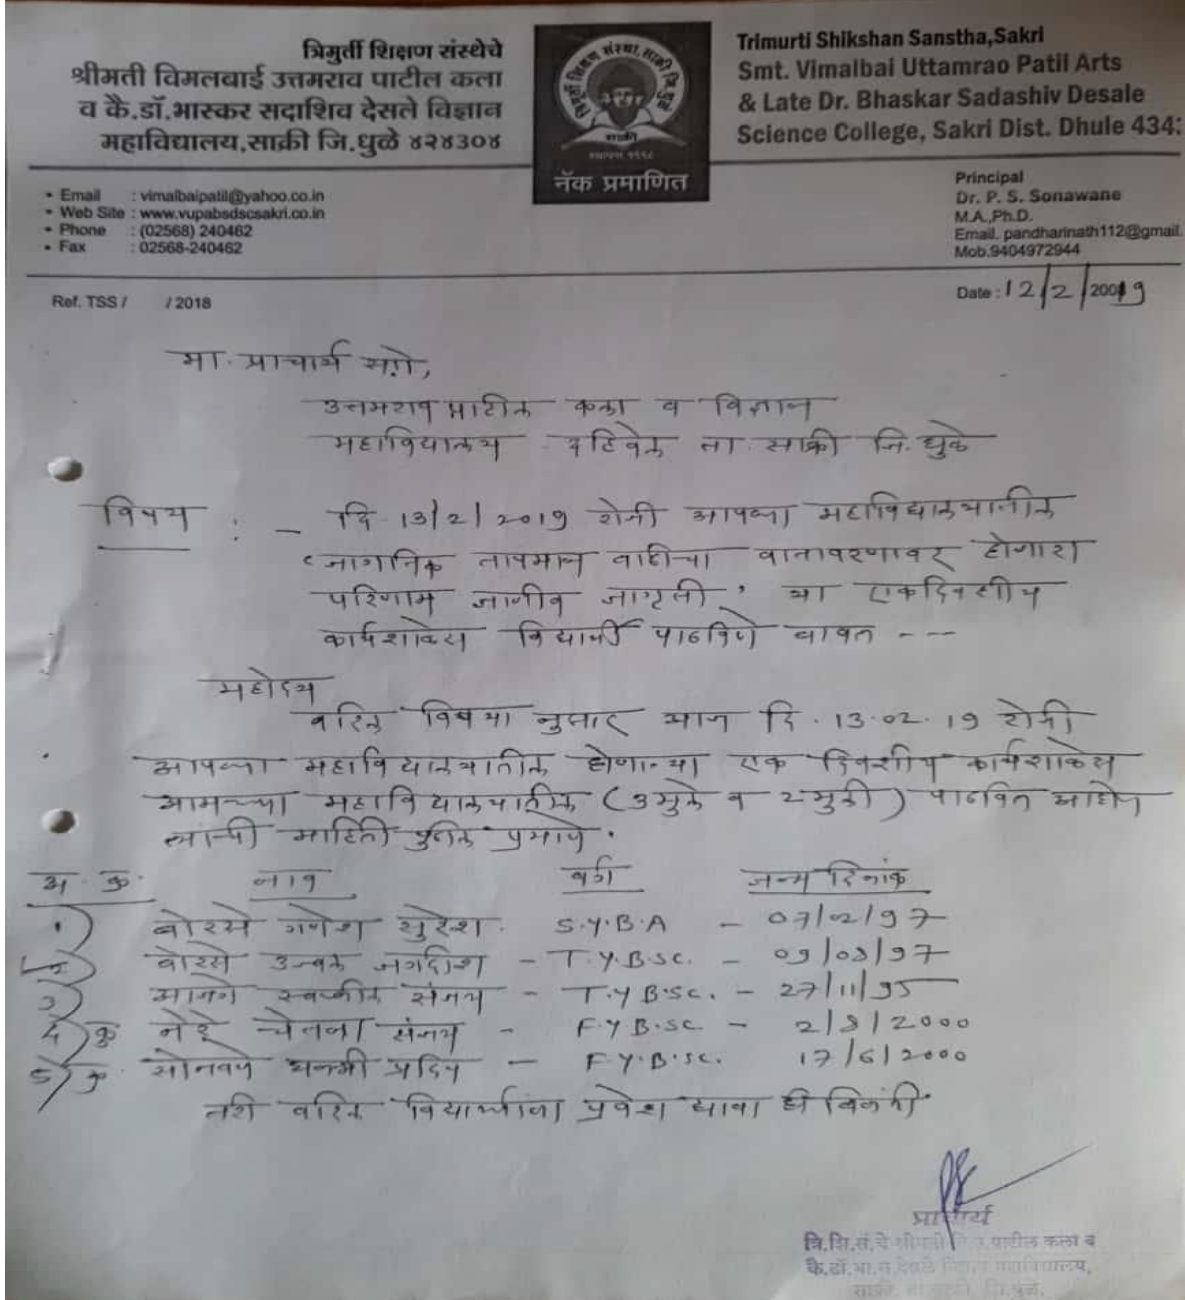 त्रिमुर्ती शिक्षण संस्थेचे
श्रीमती विमलबाई उत्तमराव पाटील कला
व कै.डॉ.भास्कर सदाशिव देसले विज्ञान
महाविद्यालय,साक्री जि.धुळे ४२४३०४
साक्री
स्थापना १९९८
नॅक प्रमाणित
Trimurti Shikshan Sanstha,Sakri
Smt. Vimalbai Uttamrao Patil Arts
& Late Dr. Bhaskar Sadashiv Desale
Science College, Sakri Dist. Dhule 434:
• Email : vimalbaipatil@yahoo.co.in
• Web Site : www.vupabsdscsakri.co.in
• Phone : (02568) 240462
• Fax : 02568-240462
Principal
Dr. P. S. Sonawane
M.A.,Ph.D.
Email. pandharinath112@gmail.
Mob.9404972944
Ref. TSS / / 2018
Date : 12/2/2019
मा. प्राचार्य सो,
उत्तमराव पाटील कला व विज्ञान
महाविद्यालय दहिवेल ता. साक्री जि. धुळे
विषय : - दि 13/2/2019 रोजी आपल्या महाविद्यालयातील
'जागतिक तापमान वाढीचा वातावरणावर होणारा
परिणाम जाणीव जागृती' या एकदिवसीय
कार्यशाळेस विद्यार्थी पाठविणे बाबत ---
महोदय
वरिल विषया नुसार आज दि. 13.02.19 रोजी
आपल्या महाविद्यालयातील होणाऱ्या एक दिवशीय कार्यशाळेस
आमच्या महाविद्यालयातील (3 मुले व 2 मुली) पाठवित आहोत
त्याची माहिती पुढील प्रमाणे.
अ. क्र. नाव वर्ग जन्म दिनांक
1) बोरसे गणेश सुरेश. S.Y.B.A - 07/02/97
2) बोरसे उज्वल जगदीश - T.Y.B.SC. - 09/08/97
3) स्वप्नील संजय - T.Y B.SC. - 27/11/95
4) कु नेरे चेतना संजय - F.Y B.SC - 2/8/2000
5) कु. सोनवणे प्रदिप - F.Y.B.SC. 17/6/2000
तरी वरिल विद्यार्थ्यांना प्रवेश द्यावा ही विनंती.
प्राचार्य
त्रि.शि.सं.चे श्रीमती वि.उ.पाटील कला व
कै.डॉ.भा.स.देसले विज्ञान महाविद्यालय,
साक्री, ता.साक्री, जि.धुळे.